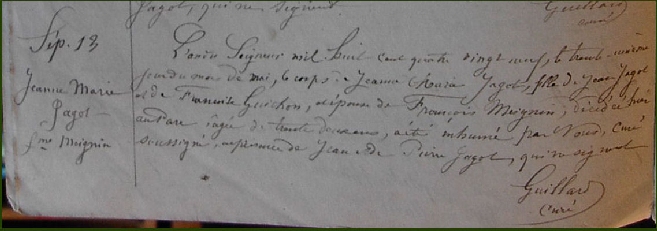 Jagot, qui ne signent
Guillard
curé
Sép. 13
Jeanne Marie
Jagot
fme Meignin
L'an du Seigneur mil huit cent quatre vingt neuf, le trente-unième
jour du mois de mai, le corps de Jeanne Marie Jagot, fille de Jean Jagot
et de Françoise Guichon, et épouse de François Meignin, décédée hier
âgée de trente deux ans, a été inhumé par Nous, curé
soussigné, en présence de Jean et de Pierre Jagot, qui ne signent
Guillard
curé